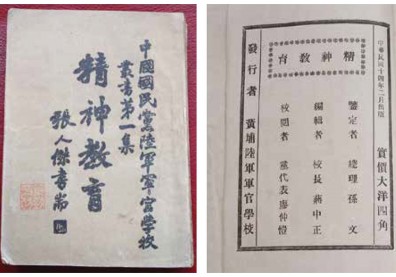 中國國民黨陸軍軍官學校
叢書第一集
精神教育
張人傑書耑
中華民國十四年二月出版
實價大洋四角
精神教育
鑒定者 總理孫文
編輯者 校長蔣中正
校閱者 黨代表廖仲愷
發行者 黃埔陸軍軍官學校